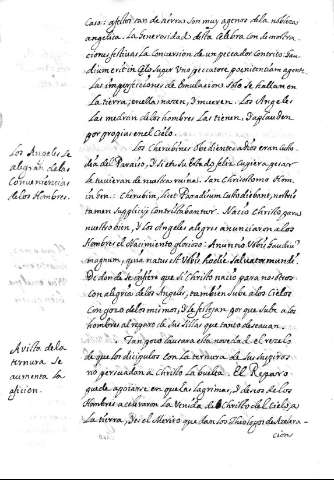 Casa: afectos tan de tierra son muy agenos de la nobleza
angelica. La generosidad desta celebra con demostra-
ciones festivas la conversion de un peccador contrito: Gau-
dium erit in Celo super uno peccatore poenitentiam agente.
Las imperfecciones de emulacion solo se hallan en
la tierra, en ella nacen, y mueren. Los Angeles
las medras de los hombres las tienen, y aplauden
por propias en el Cielo.
Los Angeles se
alegran de las
Conveniencias
de los Hombres.
Los Cherubines obedientes a Dios eran custo-
dia del Paraiso, y si en su estado feliz cupiera pesar
le tuvieran de nuestra ruina: San Chrisostomo Hom.
in Gen.: Cherubim, licet Paradisum custodiebant, nostris
tamen supplicijs contristabantur. Nacio Christo para
nuestro bien, y los Angeles alegres anunciaron a los
Hombres el Nacimiento glorioso: Anuncio Vobis Gaudium
magnum, quia natus est Vobis hodie Salvator mundi.
De donde se infiere que si Christo nacio para nosotros
con alegria de los Angeles, tambien sube a los Cielos
con gozo de los mismos, y le festejan por que sube a los
hombres al reparo de sus sillas que tanto deseauan.
A vista de la
ternura se
aumenta la
aficion.
Tan gozo causara esta novedad, el rezelo
de que los dicipulos con la ternura de sus suspiros
no persuadan a Christo la buelta. El Reparo
puede apoiarse en que las lagrimas, y deseos de los
Hombres aceleraron la Venida de Christo del Cielo a
la tierra, y es el Merito que dan los Theologos de Acelera-
cion